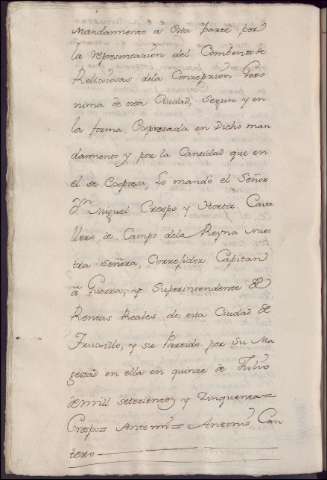 Mandamiento a esta parte por
la representacion del Combento de
Religiosas dela Concepcion Gero
nima de esta Ciudad, segun y en
la forma Expresada en Dicho man
damiento y por la Cantidad que en
el se Expresa, Lo mando el Señor
Dn Miguel Crespo y Cava
llero de Campo dela Reyna Nues
tra Señora, Correxidor Capitan
a Guerra, y Superintendente de
Rentas Reales de esta Ciudad de
Truxillo, y su Partido por Su Ma
gestad en ella en quinze de Julio
de mill setecientos y Zinquenta=
Crespo= Antemi= Antonio Can
tero